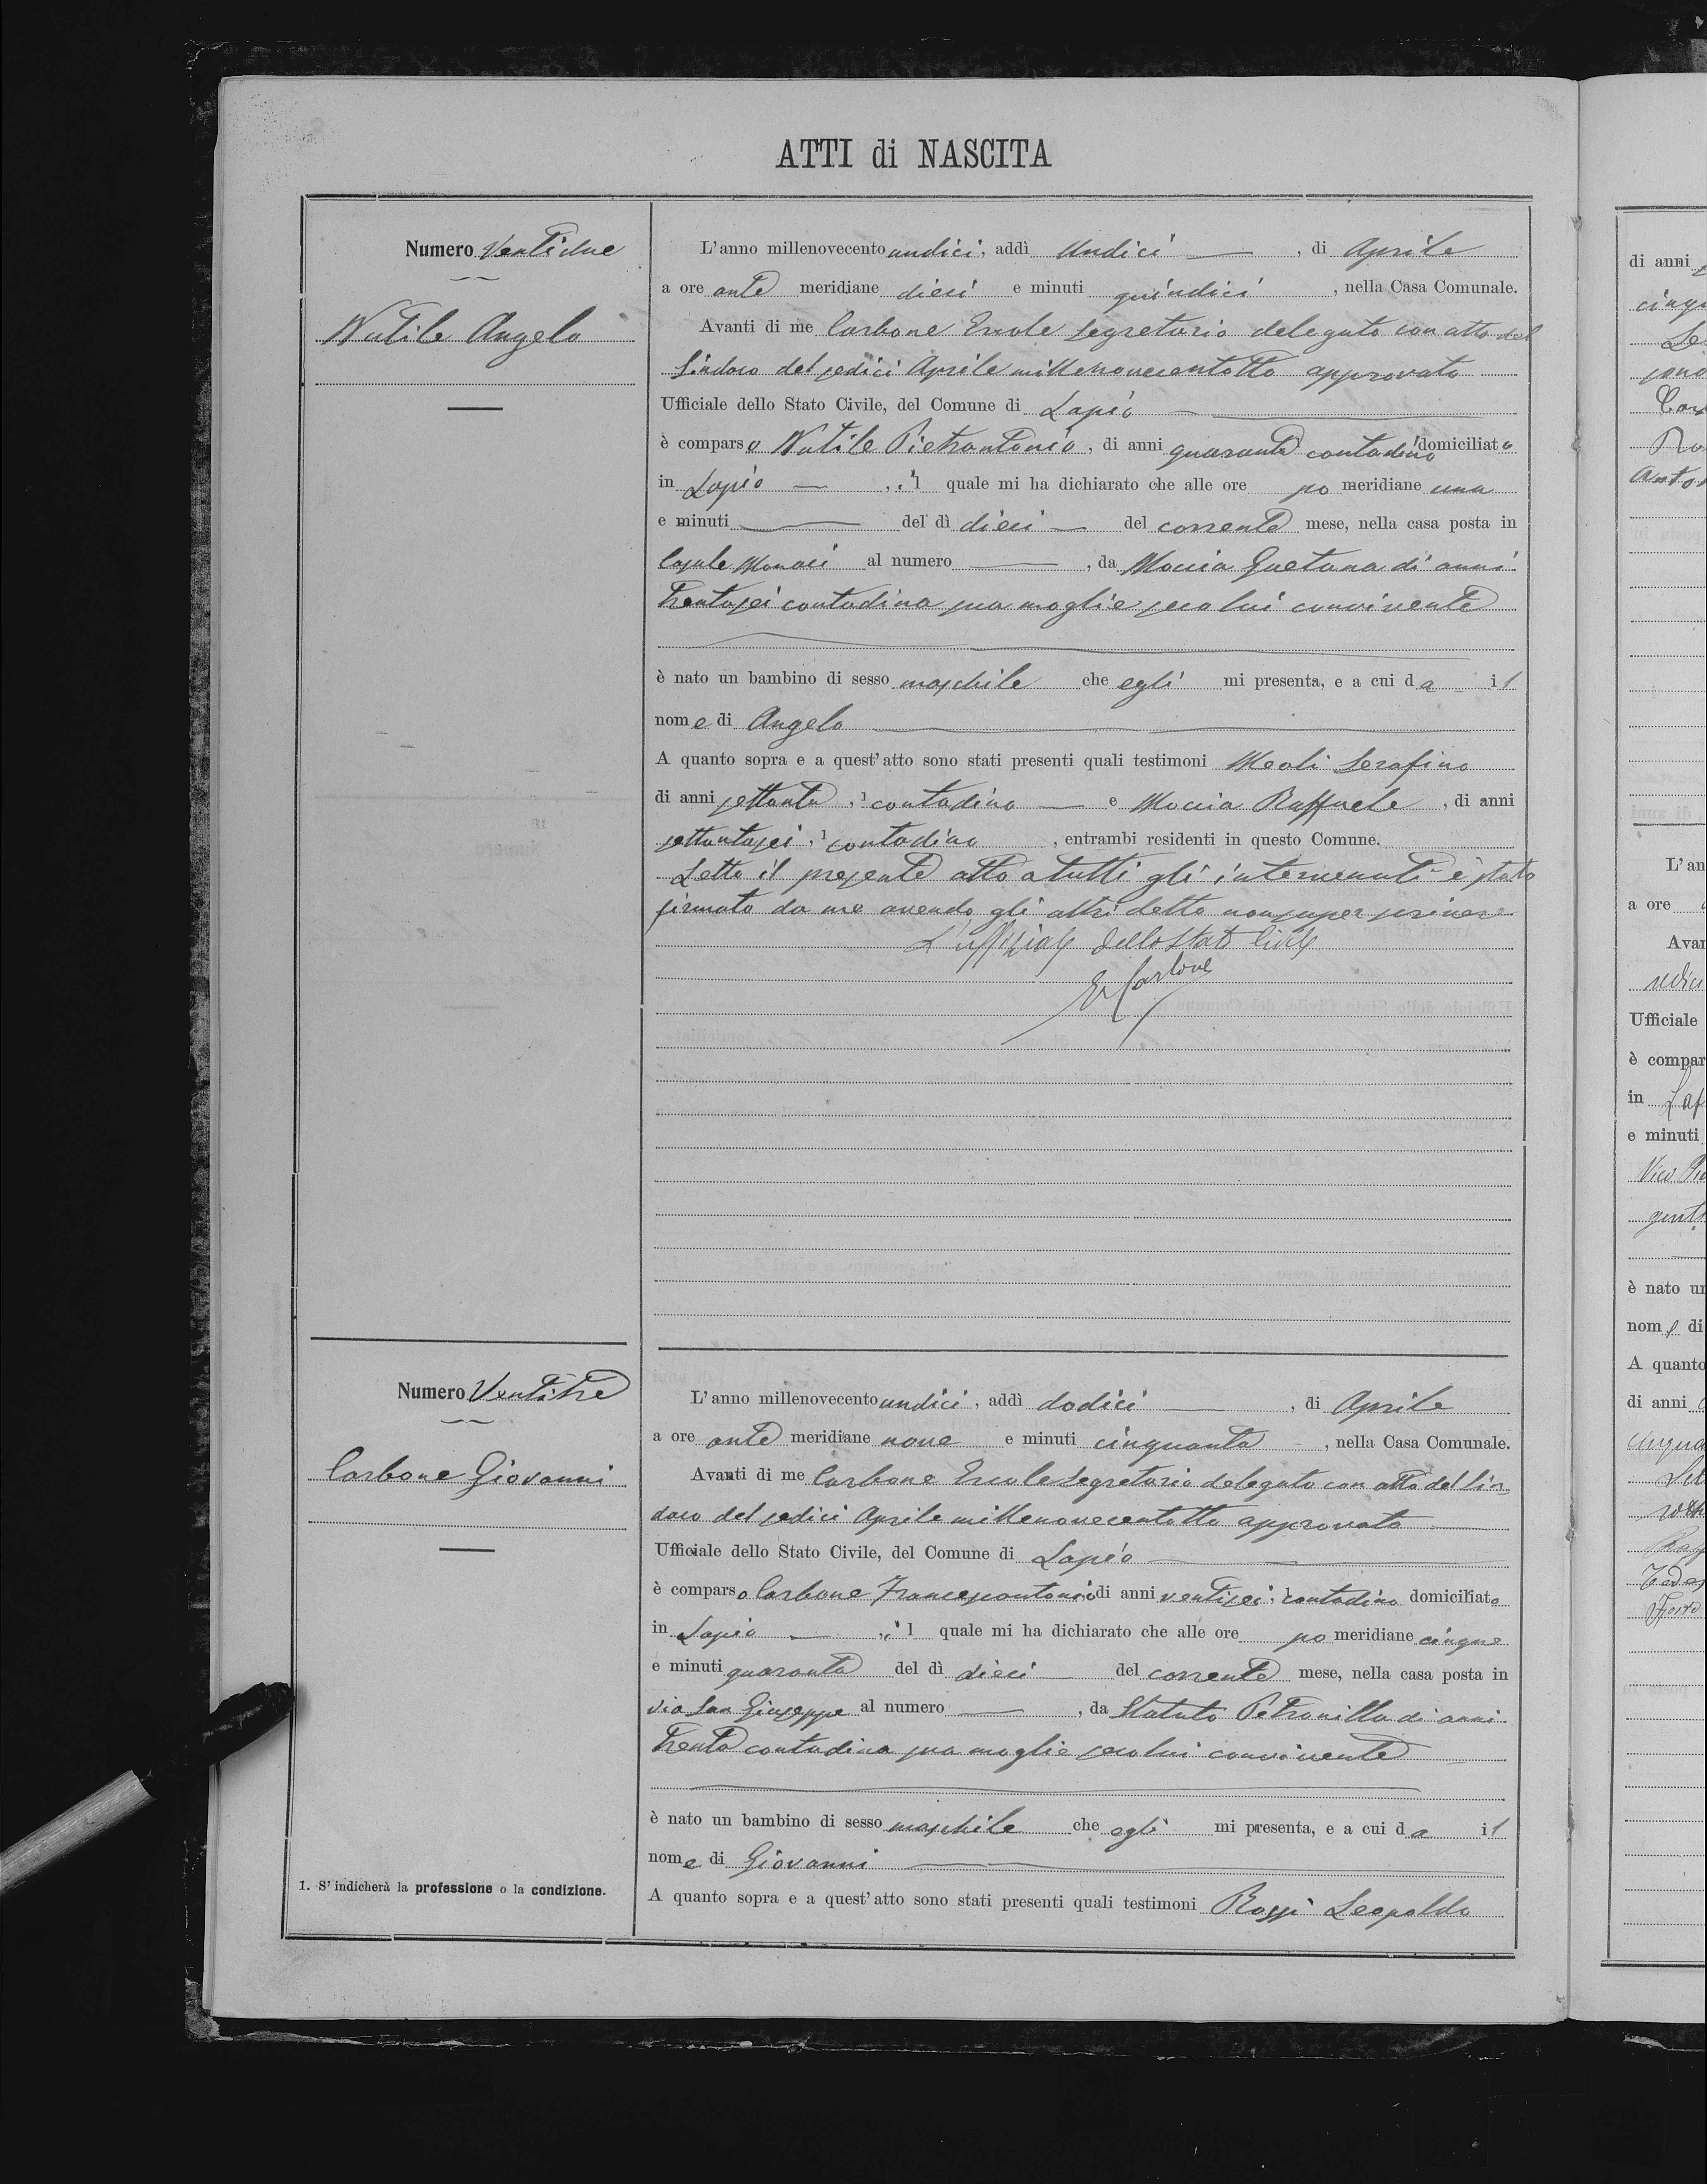 ATTI di NASCITA
Numero Ventidue
Nutile Angelo
L'anno millenovecento undici, addì Undici — , di Aprile
a ore ante meridiane dieci e minuti quindici , nella Casa Comunale.
Avanti di me Carbone Ercole Segretario delegato con atto del
Sindaco del sedici Aprile millenovecentotto approvato
Ufficiale dello Stato Civile, del Comune di Lapio —
è comparso Nutile Pietrantonio, di anni quaranta contadino domiciliato
in Lapio — , il quale mi ha dichiarato che alle ore po meridiane una
e minuti — del dì dieci — del corrente mese, nella casa posta in
Casale Monaci al numero — , da Moccia Gaetana di anni
trentasei contadina sua moglie seco lui convivente
è nato un bambino di sesso maschile che egli mi presenta, e a cui da il
nome di Angelo —
A quanto sopra e a quest'atto sono stati presenti quali testimoni Meoli Serafino
di anni settanta, 1 contadino — e Moccia Raffaele , di anni
settantasei, 1 contadino , entrambi residenti in questo Comune.
Letto il presente atto a tutti gli intervenuti è stato
firmato da me avendo gli altri detto non saper scrivere
L'uffiziale dello Stato Civile
E. Carbone
Numero Ventitre
Carbone Giovanni
L'anno millenovecento undici, addì dodici — , di Aprile
a ore ante meridiane nove e minuti cinquanta - , nella Casa Comunale.
Avanti di me Carbone Ercole Segretario delegato con atto del Sin
daco del sedici Aprile millenovecentotto approvato —
Ufficiale dello Stato Civile, del Comune di Lapio —
è comparso Carbone Francescantonio di anni ventisei, 1 contadino domiciliato
in Lapio — , il quale mi ha dichiarato che alle ore po meridiane cinque
e minuti quaranta del dì dieci — del corrente mese, nella casa posta in
via San Giuseppe al numero — , da Statuto Petronilla di anni
trenta contadina sua moglie seco lui convivente
è nato un bambino di sesso maschile che egli mi presenta, e a cui da il
nome di Giovanni —
A quanto sopra e a quest'atto sono stati presenti quali testimoni Rossi Leopoldo
1. S'indicherà la professione o la condizione.
di anni
L'an
a ore
Avan
Ufficiale
è compar
in Lap
e minuti
è nato un
nome di
A quanto
di anni